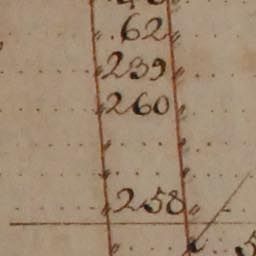 62
239
260
"
"
258